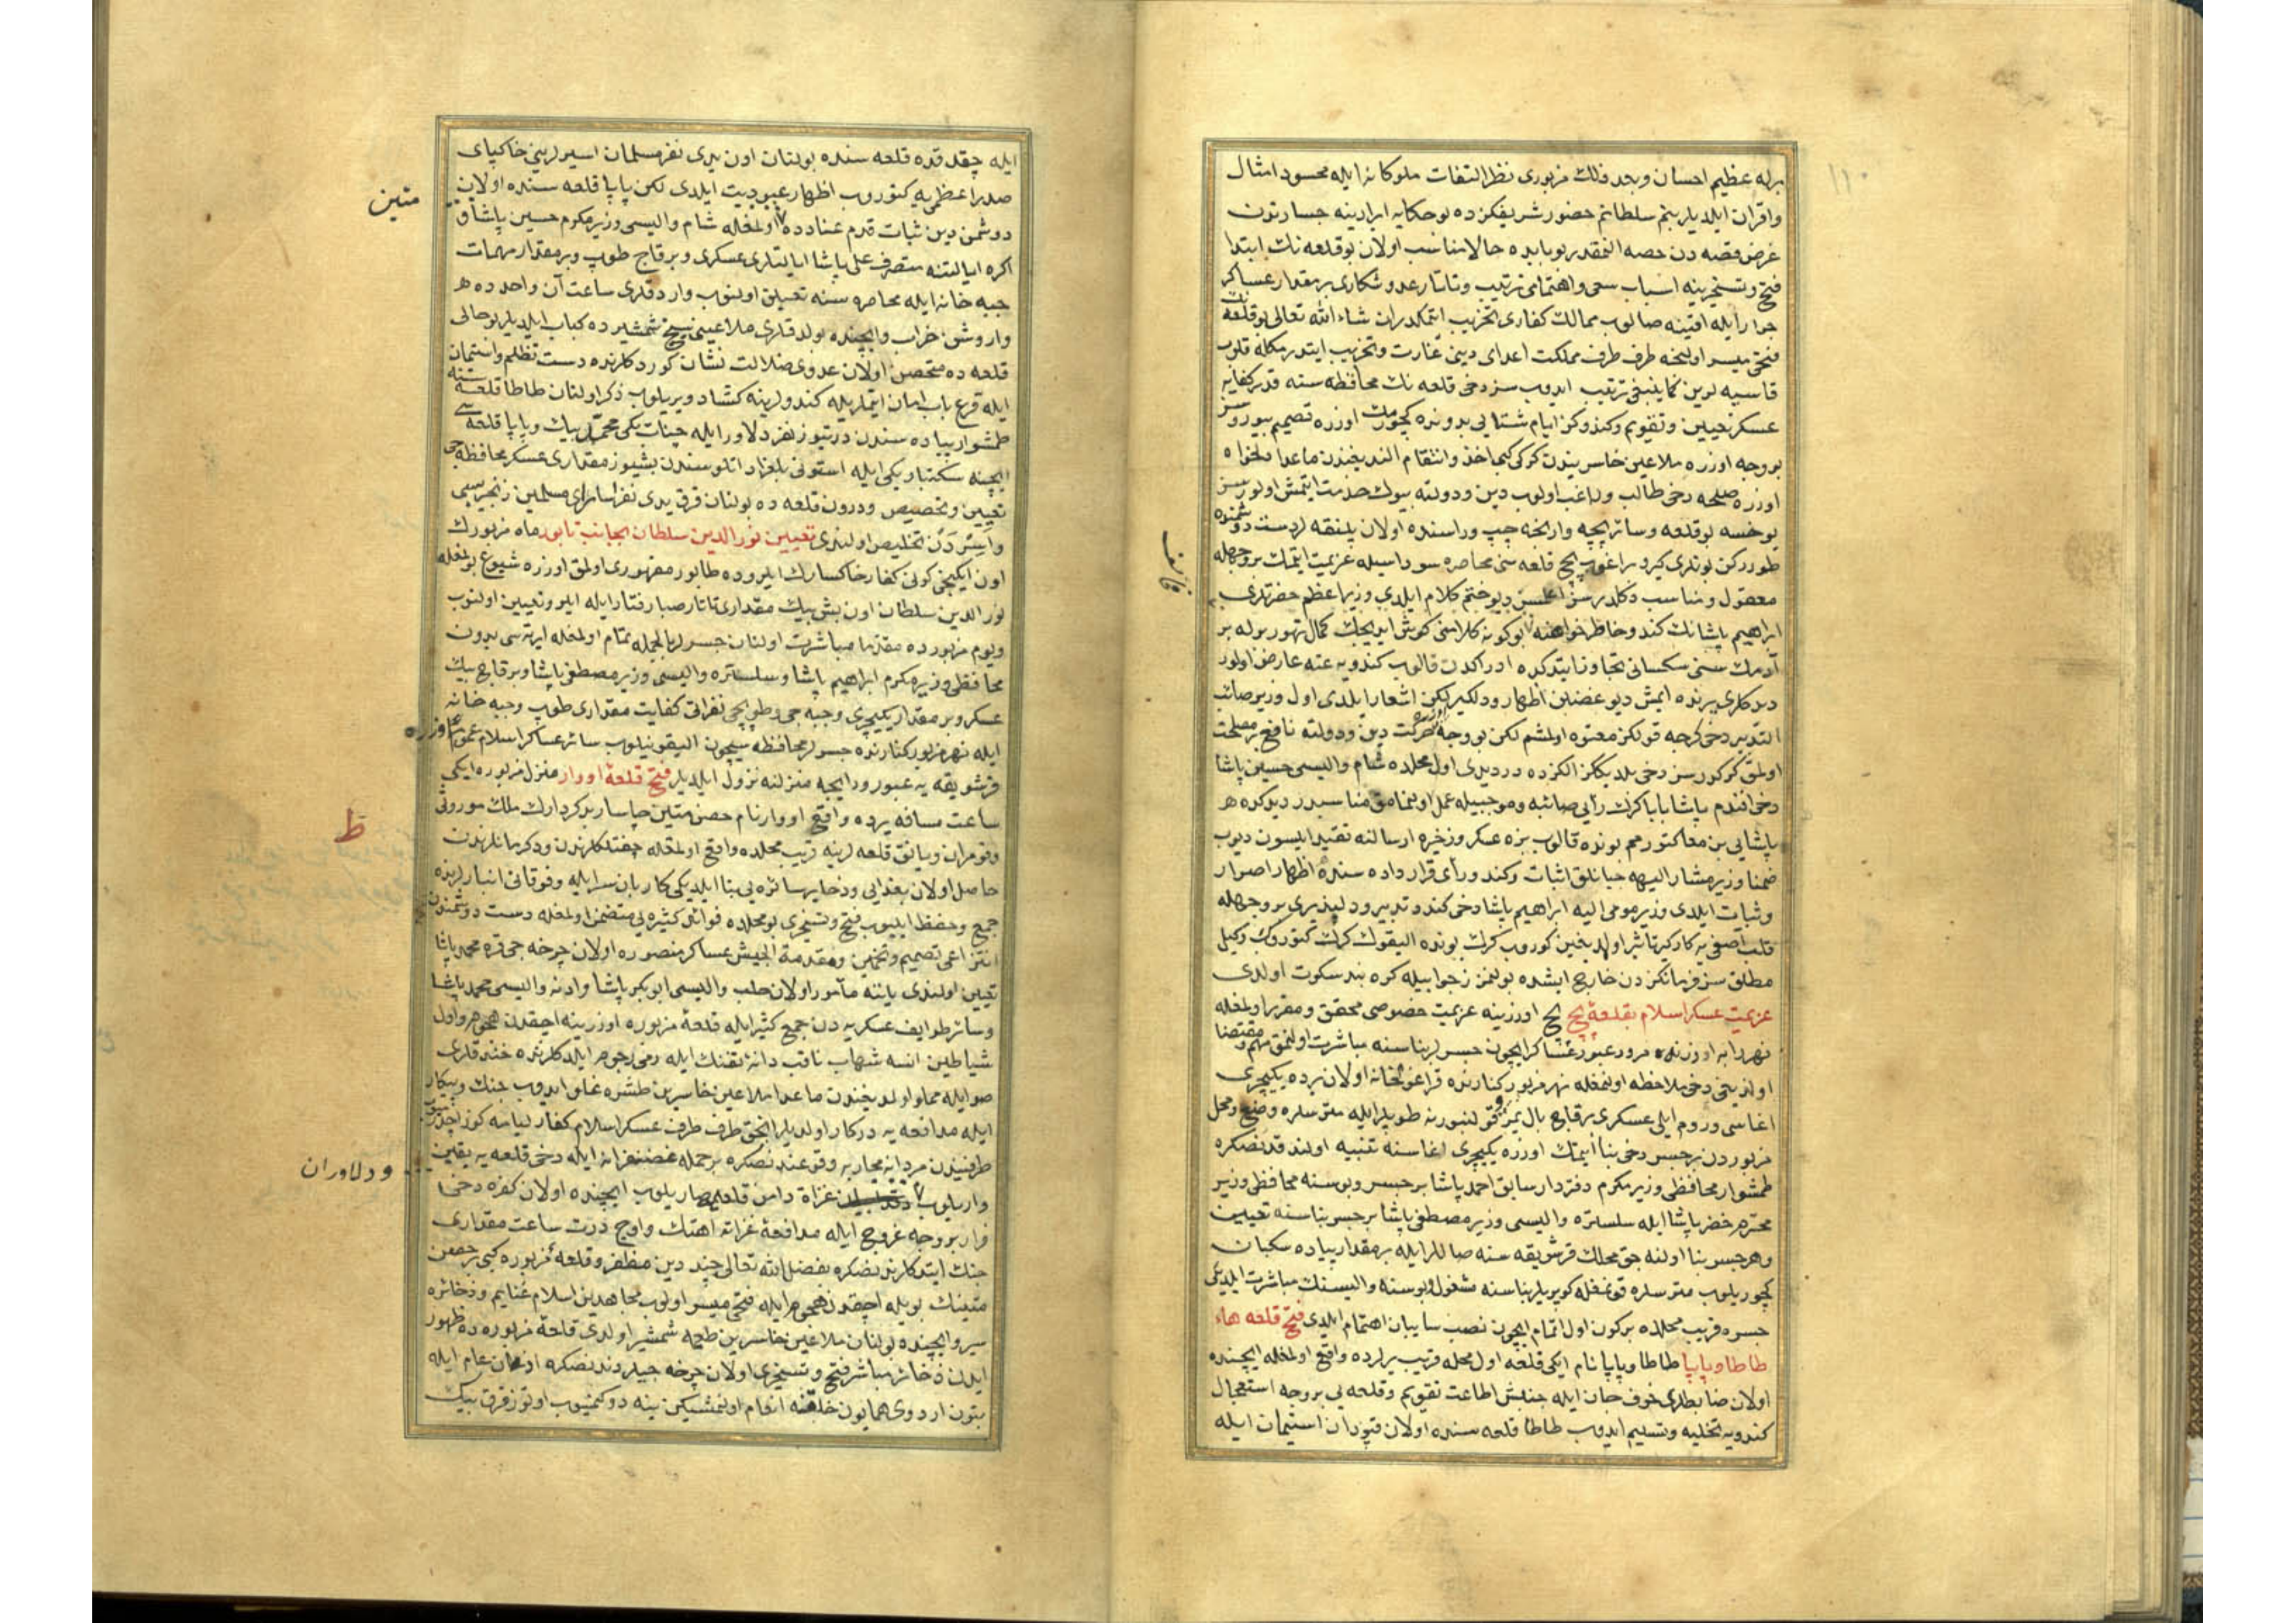 برله عظیم احسان وبجد فلك مزبوری نظر التفات ملوکانه ایله محسود امثال
واقران ایلدیلر بنم سلطانم حضور شریفکزده بو حکایه ایرادینه جسارتون
غرض قصه دن حصه النمقدر بو بابده حالا مناسب اولان بو قلعه نك ابتدا
فتح وتسخیرینه اسباب سعی واهتمامی ترتیب وتاتار عدو شکاری بر مقدار عساکر
جرار ایله اقینه صالوب ممالك کفاری تخریب ایتمکدر ان شاء الله تعالی بو قلعه نك
فتحی میسر اولنجه طرف طرف مملکت اعدای دینی غارت وتخریب ایتدرمکله قلوب
قاسیه لرین کما ینبغی ترتیب ایدوب سز دخی قلعه نك محافظه سنه قدر کفایه
عسکر تعیین وتقویم وکندوکز ایام شتایی بدونده کچورمك اوزره تصمیم بیوررسز
بو وجه اوزره ملاعین خاسریندن کرکی کبی اخذ وانتقام الندیغندن ماعدا دلخواه
اوزره صلحه دخی طالب وراغب اولوب دین ودولته بیوك خدمت ایتمش اولورسز
یوخسه بو قلعه وسائر بچه وارنجه چپ وراسنده اولان پلنقه لر دست دشمنده
طوررکن بونلری کیرو براغوب بچ قلعه سنی محاصره سوداسیله عزیمت ایتمك بر وجهله
معقول ومناسب دکلدر دیو ختم کلام ایلدی وزیر اعظم حضرتلری
ابراهیم پاشانك کندو خاطرخواهنه بو کونه کلامنی کوش ایدیجك کمال تهور برله بر
آدمك سنی سکسانی تجاوز ایتدکده ادراکدن قالوب کندویه عته عارض اولور
دیدکلری یرنده ایمش دیو غضبن اظهار ودلکیرلکن اشعار ایلدی اول وزیر صائب
التدبیر دخی کرچه قولکز معتوه اولمشم لکن بو وجه اوزره حرکت دین ودولته نافع بر مصلحت
اولمق کرکور سز دخی بلدیککز الکزده در دیدی اول محلده شام والیسی حسین پاشا
دخی افندم پاشا بابا کرك رأیی صائبه وموجبیله عمل اولنمامق مناسبدر دیدکده هر
پاشایی بن معا کتوررم بونده قالوب بزه عسکر وزخیره ارسالنه تقید ایلسون دیوب
ضمنا وزیر مشار الیهه جبانلق اثبات وکندو رأی قرار داده سنده اظهار اصرار
وثبات ایلدی وزیر مومی الیه ابراهیم پاشا دخی کندو تدبیر ودلپذیری بر وجهله
قلب اصفی یه کارکیر تاثیر اولمدیغین کوروب کرك بونده الیقوك کرك کتورك وکیل
مطلق سز فرمانکزدن خارج ایشده بولنمز ز جوابیله کره بند سکوت اولدی
عزیمت عسکر اسلام بقلعهٔ بچ بچ اوزرینه عزیمت خصوصی محقق ومقرر اولمغله
نهر رابه اوزرنده مرور عبور عساکر ایچون جسرلر بناسنه مباشرت اولنمق مهم ومقتضا
اولدیغی دخی ملاحظه اولنمغله نهر مزبور کنارنده قراغولخانه اولان یرده یکیچری
اغاسی وروم ایلی عسکری برقاج بال یمز وقولنبورنه طوپلر ایله متریسلره وضع ومحل
مزبوردن بر جسر دخی بنا ایتمك اوزره یکیچری اغاسنه تنبیه اولندقدنصکره
طمشوار محافظی وزیر مکرم دفتردار سابق احمد پاشا بر جسر وبوسنه محافظی وزیر
محترم خضر پاشا ایله سلستره والیسی وزیر مصطفی پاشا بر جسر بناسنه تعیین
وهر جسر بنا اولنه جق محلك قرشو یقه سنه صاللر ایله بر مقدار پیاده سکبان
کچوریلوب متریسلره قونمغله کوپریلر بناسنه مشغول وبوسنه والیسنك مباشرت ایلدیکی
جسره قریب محلده بر کون اول اتمام ایچون نصب سایبان اهتمام ایلدی فتح قلعه هاء
طاطا وپاپا طاطا وپاپا نام ایکی قلعه اول محله قریب یرلرده واقع اولمغله ایچنده
اولان ضابطلری خوف جان ایله جنبش اطاعت تقویم وقلعه یی بر وجه استعجال
کندویه تخلیه وتسلیم ایدوب طاطا قلعه سنده اولان قپودان استیمان ایله
ایله چقدقده قلعه سنده بولنان اون یدی نفر مسلمان اسیرلرینی خاکپای
صدر اعظمی یه کتوروب اظهار عبودیت ایلدی لکن پاپا قلعه سنده اولان
متین
دوشمن دین ثبات قدم عنادده اولمغله شام والیسی وزیر مکرم حسین پاشا و
اکره ایالتنه متصرف علی پاشا ایالتلری عسکری وبر قاج طوپ وبر مقدار مهمات
جبه خانه ایله محاصره سنه تعیین اولنوب واردقلری ساعت آن واحدده هر
واروشن خراب وایچنده بولدقلری ملاعینی سیخ شمشیرده کباب ایلدیلر بو حالی
قلعه ده متحصن اولان عدوی ضلالت نشان کوردکلرنده دست تظلم واستیمان
ایله قرع باب امان ایتملریله کندولرینه کشاد ویریلوب ذکر اولنان طاطا قلعه سنه
طمشوار پیاده سندن درتیوز نفر دلاور ایله چنات بکی محمد بیك وپاپا قلعه سی
ایچنه سکتبار بکی ایله استونی بلغراد اتلوسندن بشیوز مقداری عسکر محافظه جی
تعیین وتخصیص ودرون قلعه ده بولنان قرق یدی نفر اسارای مسلمین زنجیر
واسردن تخلیص اولندی تعیین نور الدین سلطان بجانب تابور ماه مزبورك
اون ایکنجی کونی کفار خاکسارك ایلروده طابور مقهوری اولمق اوزره شیوع بولمغله
نور الدین سلطان اون بش بیك مقداری تاتار صبا رفتار ایله ایلرو تعیین اولنوب
ویوم مزبورده مقدما مباشرت اولنان جسرلر بالجمله تمام اولمغله ایرته سی بدون
محافظی وزیر مکرم ابراهیم پاشا وسلستره والیسی وزیر مصطفی پاشا وبر قاج بیك
عسکر وبر مقدار یکیچری وجبه جی وطوپجی نفراتی کفایت مقداری طوپ وجبه خانه
ایله نهر مزبور کنارنده جسرلر محافظه سیچون الیقونیلوب سائر عساکر اسلام عموم اوزره
قرشو یقه یه عبور ورابچه منزلنه نزول ایلدیلر فتح قلعهٔ اووار منزل مزبوره ایکی
ساعت مسافه یرده واقع اووار نام حصن متین چاسار بدکردارك ملك موروثی
وقومران ویانق قلعه لرینه قریب محلده واقع اولمغله چفتلکلرندن ودکرمانلرندن
ظ
حاصل اولان بغدایی وذخایر سائره یی بنا ایلدیکی کاربان سرایله وفوقانی انبارلرنده
جمع وحفظ ایلیوب فتح وتسخیری بو محلده فوائد کثیره یی متضمن اولمغله دست دوشمندن
انتزاعی تصمیم وتخمین ومقدمة الجیش عساکر منصوره اولان چرخه جی قره محمد پاشا
تعیین اولندی یاننه مأمور اولان حلب والیسی ابو بکر پاشا وادنه والیسی محمد پاشا
وسائر طوایف عسکریه دن جمع کثیر ایله قلعهٔ مزبوره اوزرینه اچقدن هجوم واول
شیاطین انسه شهاب ثاقب دانهٔ تفنك ایله رمی رجوم ایلدکلرنده خندقلری
صو ایله مملو اولدیغندن ماعدا ملاعین خاسرین طشره غلو ایدوب جنك وپیکار
ایله مدافعه یه درکار اولدیلر انجق طرف طرف عسکر اسلام کفار لیامه کوز اچدرمیوب
طرفیندن مردانه محاربه وقوعندنصکره بر حمله غضنفرانه ایله دخی قلعه یه یقین
ودلاوران
واریلوب غزاة دامن قلعه یه صاریلوب ایچنده اولان کفره دخی
قرار بر وجه غروج ایله مدافعهٔ غزاته اهنك واوج درت ساعت مقداری
جنك ایتدکلرندنصکره بفضل الله تعالی جند دین مظفر وقلعهٔ مزبوره کبی بر حصن
متینك بویله اچقدن هجوم ایله فتحی میسر اولوب مجاهدین اسلام غنایم وذخائره
سیر وایچنده بولنان ملاعین خاسرین طعمه شمشیر اولدی قلعهٔ مزبوره ده ظهور
ایدن ذخائر مباشر فتح وتسخیری اولان چرخه جیلردندنصکره اذن عام ایله
بتون اردوی همایون خلقنه انعام اولنمشیکن ینه دوکنمیوب اوتوز قرق بیك